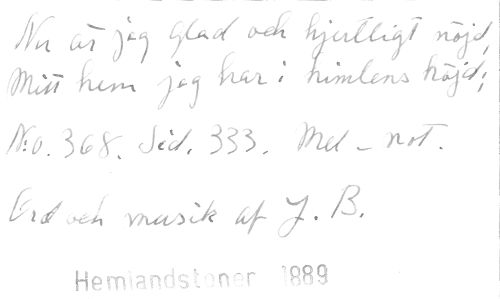 Nu är jag glad och hjertligt nöjd,
Mitt hem jag har i himlens höjd;
No. 368. Sid. 333. Mel - not.
Ord och musik af J. B.
Hemlandstoner 1889